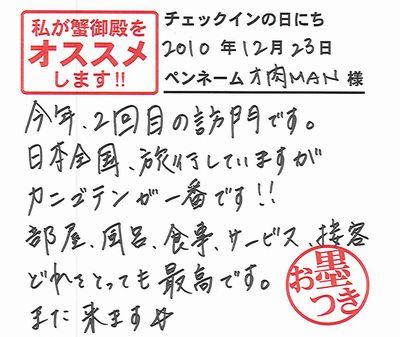 私が蟹御殿を
オススメ
します!!
チェックインの日にち
2010年12月23日
ペンネーム オ肉MAN 様
今年、2回目の訪門です。
日本全国、旅行していますが
カニゴテンが一番です!!
部屋、風呂、食事、サービス、接客
どれをとっても最高です。
また来ます☆
お墨つき